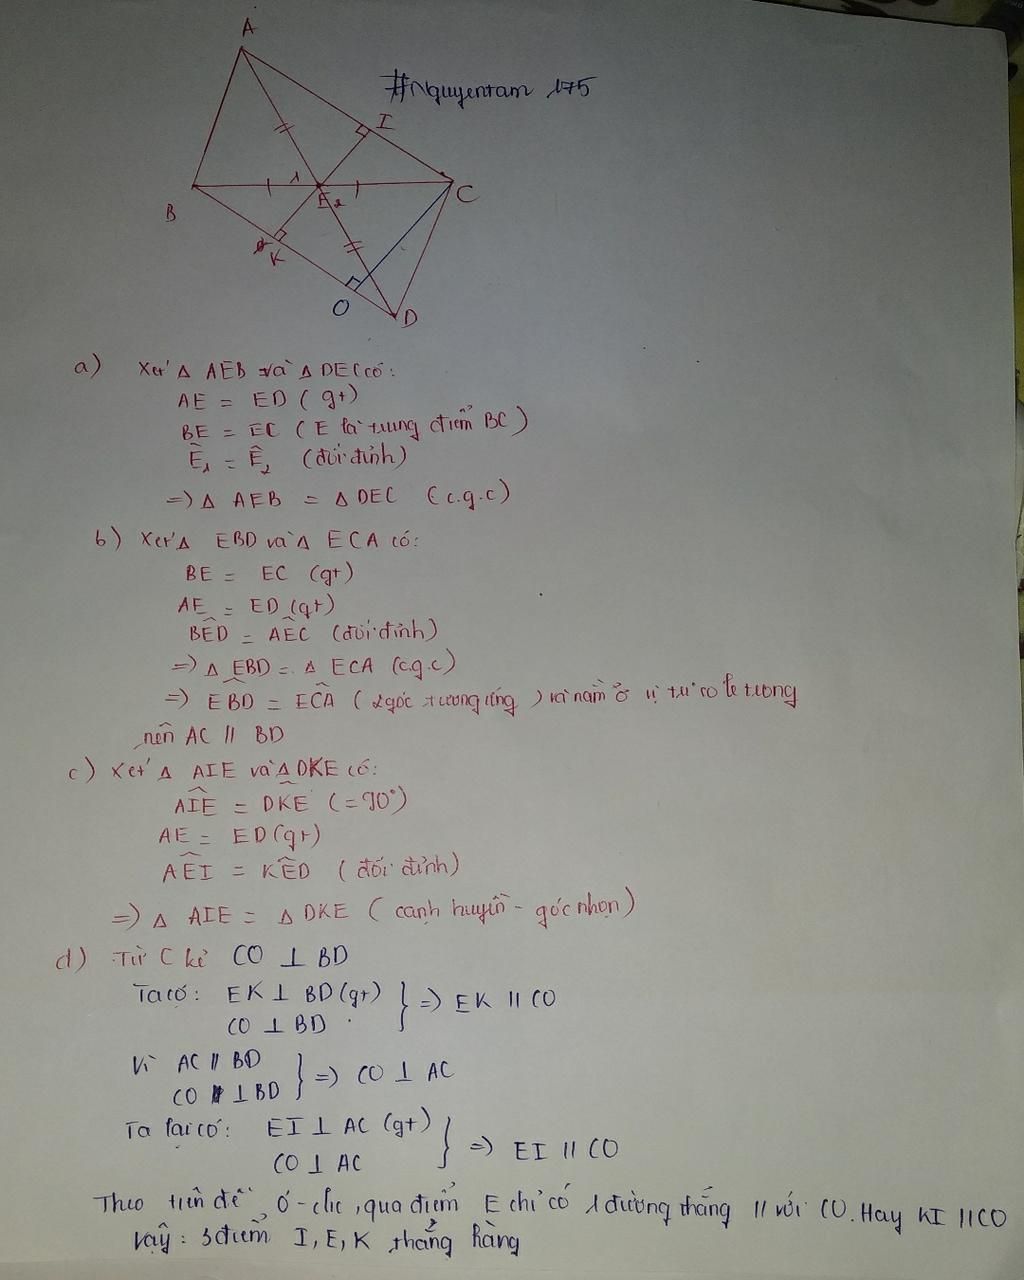 A
#Nguyentam 175
I
1
B
E 2
C
K
O
D
a) Xét Δ AEB và Δ DEC có:
AE = ED (gt)
BE = EC (E là trung điểm BC)
Ê1 = Ê2 (đối đỉnh)
=> Δ AEB = Δ DEC (c.g.c)
b) Xét Δ EBD và Δ ECA có:
BE = EC (gt)
AE = ED (gt)
BÊD = AÊC (đối đỉnh)
=> Δ EBD = Δ ECA (c.g.c)
=> EB̂D = EĈA (2 góc tương ứng) và nằm ở vị trí so le tương
nên AC // BD
c) Xét Δ AIE và Δ DKE có:
AÎE = DK̂E (= 90°)
AE = ED (gt)
AÊI = KÊD (đối đỉnh)
=> Δ AIE = Δ DKE (cạnh huyền - góc nhọn)
d) Từ C kẻ CO ⊥ BD
Ta có: EK ⊥ BD (gt) } => EK // CO
CO ⊥ BD
Vì AC // BD } => CO ⊥ AC
CO ⊥ BD
Ta lại có: EI ⊥ AC (gt) } => EI // CO
CO ⊥ AC
Theo tiên đề Ơ-clic, qua điểm E chỉ có 1 đường thẳng // với CO. Hay KI // CO
Vậy: 3 điểm I, E, K thẳng hàng